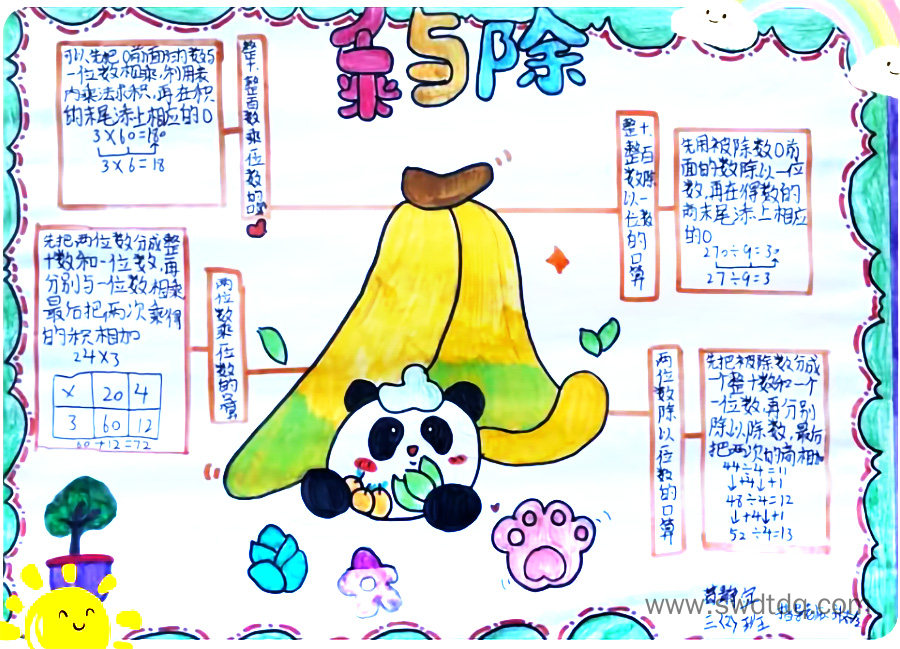 乘与除
可以先把0前面的数与
一位数相乘,利用表
内乘法求积,再在积
的末尾添上相应的0
3×60=180
3×6=18
整十、整百数乘一位数的口算
先把两位数分成整
十数和一位数,再
分别与一位数相乘
最后把两次乘得
的积相加
24×3
× 20 4
3 60 12
60+12=72
两位数乘一位数的口算
整十、整百数除以一位数的口算
先用被除数0前
面的数除以一位
数,再在得数的
末尾添上相应
的0
270÷9=30
27÷9=3
两位数除以一位数的口算
先把被除数分成
一个整十数和一个
一位数,再分别
除以除数,最后
把两次的商相加
44÷4=11
↓+4↓+1
48÷4=12
↓+4↓+1
52÷4=13
www.swdtdg.com